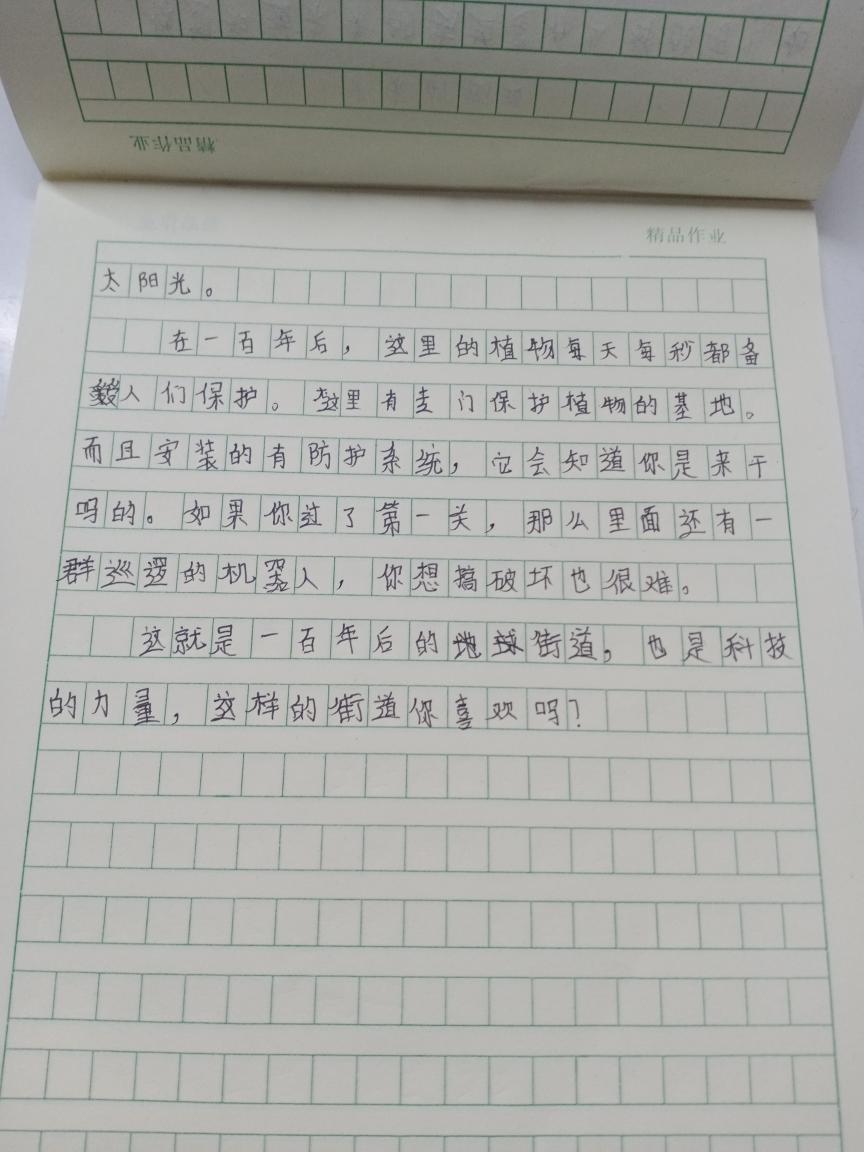 精品作业
精品作业
太阳光。
在一百年后，这里的植物每天每秒都备
人们保护。这里有专门保护植物的基地。
而且安装的有防护系统，它会知道你是来干
吗的。如果你过了第一关，那么里面还有一
群巡逻的机器人，你想搞破坏也很难。
这就是一百年后的地球街道，也是科技
的力量，这样的街道你喜欢吗？